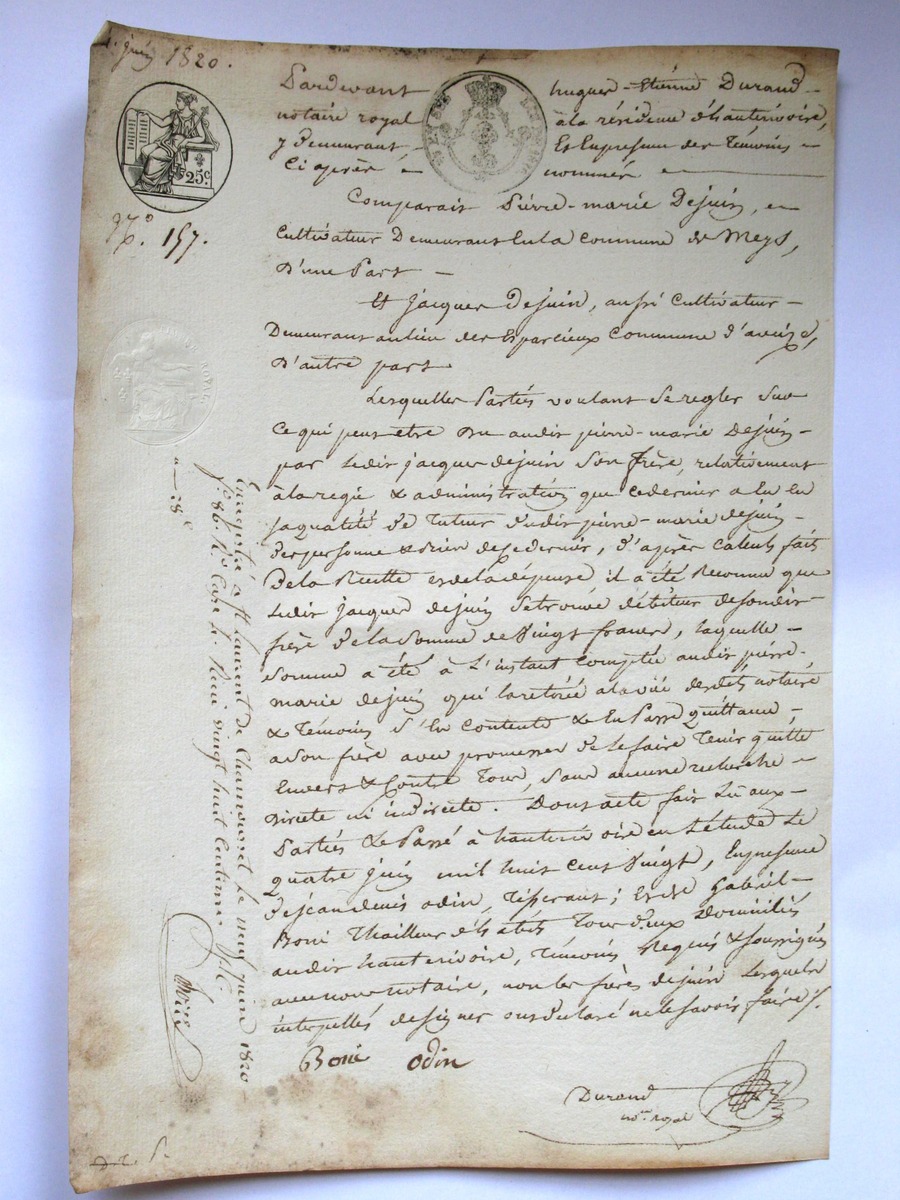 4. juin 1820.
Pardevant hugues-Etienne Durand
notaire royal à la résidence d'hauterivoire,
y Demeurant Et En presence des Témoins
Ci après nommés
25c.
N.° 157.
Comparait Pierre-marie Dejuin,
Cultivateur Demeurant En la Commune de Meys,
D'une Part
Et Jacques Dejuin, aussi Cultivateur
Demeurant au lieu des Esparcieux Commune d'aveize,
D'autre part
Lesquelles Parties voulant se regler sur
Ce qui peut être Du audit pierre-marie Dejuin
par Ledit jacques dejuin Son frère, relativement
à la regie & administration que ce dernier a Eu En
sa qualité De Tuteur dudit pierre-marie dejuin
des personne & bien de ce dernier, D'après Calculs faits
De la Recette et de la dépense il a été Reconnu que
Ledit jacques dejuin se trouve débiteur de sondit
frère De la Somme de Vingt francs, Laquelle
Somme a été à L'instant Comptée audit pierre-
marie dejuin qui la retirée a la vue desdits notaire
& Témoins S'En Contente & En Passe Quittance
a Son frère avec promesses De le faire Tenir quitte
Envers & Contre Tous, Sans aucune recherche
Directe ni indirecte. Dont acte fait Lu aux
Parties & Passé à hauterivoire en L'étude Le
quatre juin mil huit Cent Vingt, En presence
De jean denis odin, Tisserant; Et de Gabriel
Boni Thailleur d'habits Tous deux Domiciliés
audit hauterivoire, Témoins Requis & soussignés
avec nous notaire, non les frères dejuin Lesquels
interpellés de signer ont declaré ne le savoir faire
Boni odin
Durand
no.re royal
Enregistré a St Laurent de Chamousset le neuf juin 1820
f.° 86. R.° Case 4. Reçu vingt huit Centimes
28 c